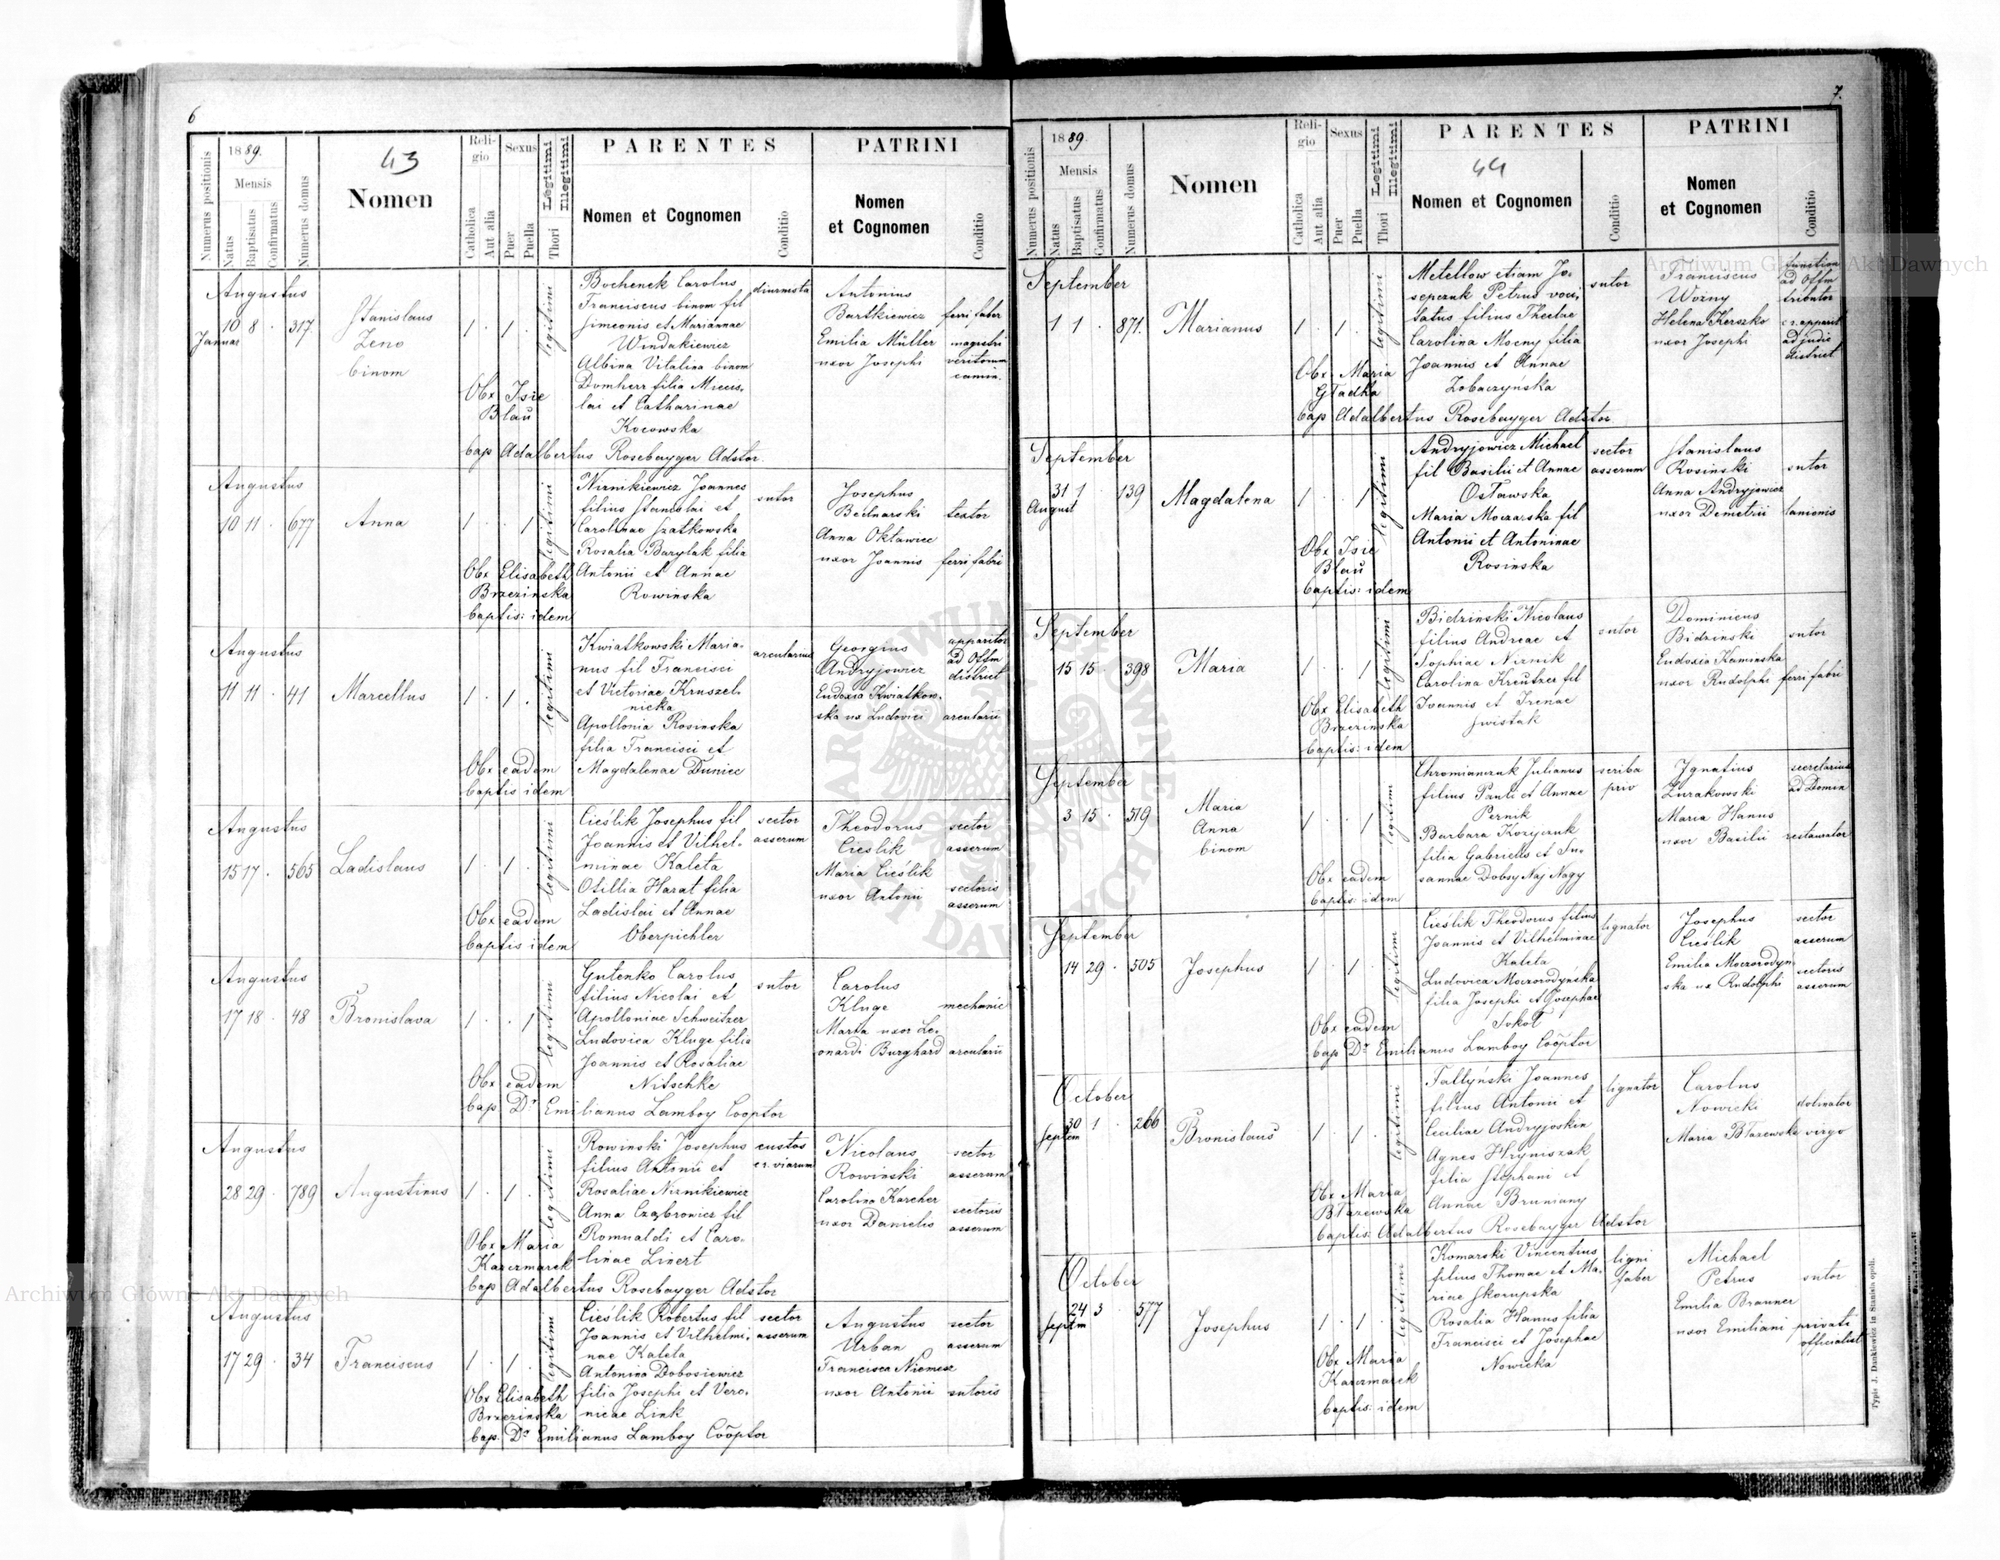 6
Numerus positionis
1889.
Mensis
Natus
Baptisatus
Confirmatus
Numerus domus
43
Nomen
Religio
Catholica
Aut alia
Sexus
Puer
Puella
Legitimi
Illegitimi
Thori
PARENTES
Nomen et Cognomen
Conditio
PATRINI
Nomen
et Cognomen
Conditio
Augustus
10 8 317
Januar
Stanislaus
Zeno
binom
1 1
legitimi
Obx Isie
Blau
bap Adalbertus Rosebayger Adstor.
Bochenek Carolus
Franciscus binom fil
Simeonis et Mariannae
Windakiewicz
Albina Vitalina binom
Domherr filia Miecis-
lai et Catharinae
Kocowska
diurnista
Antonius
Bartkiewicz
Emilia Müller
uxor Josephi
ferri faber
magistri
Augustus
10 11 677
Anna
1 1
legitimi
Obx Elisabeth
Brzezinska
baptis: idem
Nirnikiewicz Joannes
filius Stanislai et
Carolinae Szatkowska
Rosalia Barylak filia
Antonii et Annae
Rowinska
sutor
Josephus
Bednarski
Anna Oktawiec
uxor Joannis
textor
ferri fabri
Augustus
11 11 41
Marcellus
1 1
legitimi
Obx eadem
baptis idem
Kwiatkowski Maria-
nus fil Francisci
et Victoriae Kruszel-
nicka
Apollonia Rosinska
filia Francisci et
Magdalenae Duniec
arcularius
Georgius
Andryjowicz
Eudoxia Kwiatkow-
ska ux Ludovici
apparitor
ad Offm
district
arcularii
Augustus
15 17 565
Ladislaus
1 1
legitimi
Obx eadem
baptis idem
Cieślik Josephus fil
Joannis et Vilhel-
minae Kaleta
Otillia Harat filia
Ladislai et Annae
Oberpichler
sector
asserum
Theodorus
Cieślik
Maria Cieślik
uxor Antonii
sector
asserum
sectoris
asserum
Augustus
17 18 48
Bronislava
1 1
legitimi
Obx eadem
bap Dr Emilianus Lamboy Cooptor
Gutenko Carolus
filius Nicolai et
Apolloniae Schweitzer
Ludovica Kluge filia
Joannis et Rosaliae
Nitschke
sutor
Carolus
Kluge
Maria uxor Le-
onardi Burghard
mechanic
arcularii
Augustus
28 29 789
Augustinus
1 1
legitimi
Obx Maria
Kaczmarek
bap Adalbertus Rosebayger Adstor
Rowinski Josephus
filius Antonii et
Rosaliae Nirnikiewicz
Anna Czabrowicz fil
Romualdi et Caro-
linae Linert
custos
cr. viarum
Nicolaus
Rowinski
Carolina Karcher
uxor Danielis
sector
asserum
sectoris
asserum
Augustus
17 29 34
Franciscus
1 1
legitimi
Obx Elisabeth
Brzezinska
bap. Dr Emilianus Lamboy Cōōptor
Cieślik Robertus fil
Joannis et Vilhelmi-
nae Kaleta
Antonina Dobosiewicz
filia Josephi et Vero-
nicae Link
sector
asserum
Augustus
Urban
Francisca Niemesz
uxor Antonii
sector
asserum
sutoris
7.
Numerus positionis
1889.
Mensis
Natus
Baptisatus
Confirmatus
Numerus domus
Nomen
Religio
Catholica
Aut alia
Sexus
Puer
Puella
Legitimi
Illegitimi
Thori
PARENTES
44
Nomen et Cognomen
Conditio
PATRINI
Nomen
et Cognomen
Conditio
September
1 1 871.
Marianus
1 1
legitimi
Obx Maria
Gładka
bap Adalbertus Rosebayger Adstor.
Metellow etiam Jo-
sepczuk Petrus voci-
tatus filius Theclae
Carolina Mocny filia
Joannis et Annae
Zobaczynska
sutor
Franciscus
Wozny
Helena Kerszko
uxor Josephi
ad Offm
tributor
cr. apparit
ad judic
district
September
31 1 139
August
Magdalena
1 1
legitimi
Obx Isie
Blau
baptis: idem
Andryjowicz Michael
fil Basilii et Annae
Ostawska
Maria Moczarska fil
Antonii et Antoninae
Rosinska
sector
asserum
Stanislaus
Rosinski
Anna Andryjowicz
uxor Demetrii
sutor
lanionis
September
15 15 398
Maria
1 1
legitimi
Obx Elisabeth
Brzezinska
baptis: idem
Bidzinski Nicolaus
filius Andreae et
Sophiae Nirnik
Carolina Kreutzer fil
Ioannis et Irenae
Swistak
sutor
Dominicus
Bidzinski
Eudoxia Kaminska
uxor Rudolphi
sutor
ferri fabri
September
3 15 519
Maria
Anna
binom
1 1
legitim
Obx eadem
baptis: idem
Chromianczuk Julianus
filius Pauli et Annae
Pernik
Barbara Kozyczuk
filia Gabrielis et Su-
sannae Dobsy Naj Nagy
scriba
priv
Ignatius
Zurakowski
Maria Hanus
uxor Basilii
secretarius
ad Domin
restaurator
September
14 29 505
Josephus
1 1
legitimi
Obx eadem
bap Dr Emilianus Lamboy Cōōptor
Cieślik Theodorus filius
Joannis et Vilhelminae
Kaleta
Ludovica Moczorodyńska
filia Josephi et Josephae
Sokoł
lignator
Josephus
Cieślik
Emilia Moczorodyn-
ska ux Rudolphi
sector
asserum
sectoris
asserum
October
30 1 266
Septem
Bronislaus
1 1
legitimi
Obx Maria
Błazewska
baptis: Adalbertus Rosebayger Adstor
Tallyński Joannes
filius Antonii et
Ceciliae Andryjoskin
Agnes Hryniszak
filia Stephani et
Annae Brumany
lignator
Carolus
Nowicki
Maria Błazewska
virgo
October
24 3 577
Septm
Josephus
1 1
legitimi
Obx Maria
Kaczmarek
baptis: idem
Komarski Vincentius
filius Thomae et Ma-
riae Skorupska
Rosalia Hanus filia
Francisci et Josephae
Nowicka
ligni
faber
Michael
Petrus
Emilia Branner
uxor Emiliani
sutor
privati
officialist
Typis J. Dankiewicz in Stanislaopoli.
Archiwum Główne Akt Dawnych
Archiwum Główne Akt Dawnych
ARCHIWUM GŁÓWNE AKT DAWNYCH